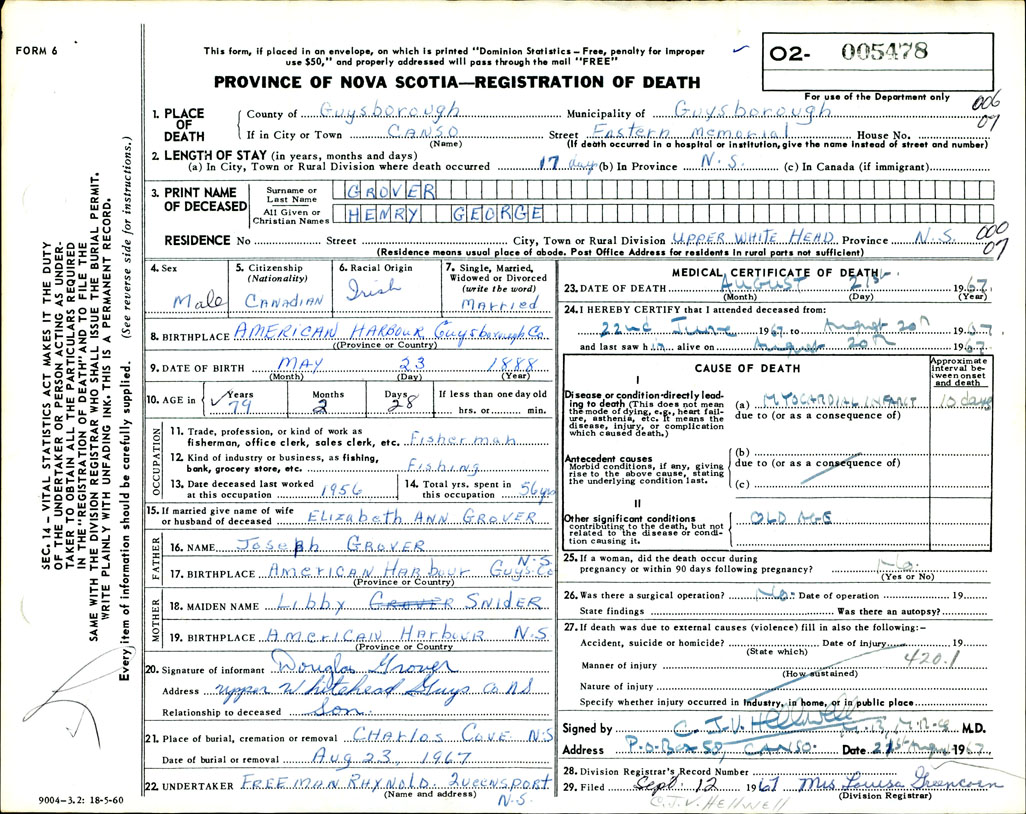 FORM 6
This form, if placed in an envelope, on which is printed "Dominion Statistics – Free, penalty for improper
use $50," and properly addressed will pass through the mail "FREE"
PROVINCE OF NOVA SCOTIA—REGISTRATION OF DEATH
02- 005478
For use of the Department only
006
07
1. PLACE OF DEATH
County of Guysborough Municipality of Guysborough
If in City or Town CANSO Street Eastern Memorial House No.
(Name) (If death occurred in a hospital or institution, give the name instead of street and number)
2. LENGTH OF STAY (in years, months and days)
(a) In City, Town or Rural Division where death occurred 17 days (b) In Province N.S. (c) In Canada (if immigrant)
3. PRINT NAME OF DECEASED
Surname or Last Name GROVER
All Given or Christian Names HENRY GEORGE
RESIDENCE No Street City, Town or Rural Division UPPER WHITE HEAD Province N.S.
(Residence means usual place of abode. Post Office Address for residents in rural parts not sufficient)
000
07
4. Sex
Male
5. Citizenship (Nationality)
CANADIAN
6. Racial Origin
Irish
7. Single, Married, Widowed or Divorced (write the word)
MARRIED
8. BIRTHPLACE AMERICAN HARBOUR Guysborough Co
(Province or Country)
9. DATE OF BIRTH MAY 23 1888
(Month) (Day) (Year)
10. AGE in Years 79 Months 2 Days 28 If less than one day old hrs. or min.
OCCUPATION
11. Trade, profession, or kind of work as
fisherman, office clerk, sales clerk, etc. Fisherman
12. Kind of industry or business, as fishing,
bank, grocery store, etc. Fishing
13. Date deceased last worked at this occupation 1956
14. Total yrs. spent in this occupation 56 yrs
15. If married give name of wife
or husband of deceased ELIZABETH ANN GROVER
FATHER
16. NAME JOSEPH GROVER
17. BIRTHPLACE AMERICAN HARBOUR Guys. Co N.S.
(Province or Country)
MOTHER
18. MAIDEN NAME LIBBY GROVER SNIDER
19. BIRTHPLACE AMERICAN HARBOUR N.S
(Province or Country)
20. Signature of informant Douglas Grover
Address Upper Whitehead Guys Co NS
Relationship to deceased Son
21. Place of burial, cremation or removal CHARLOS COVE NS
Date of burial or removal Aug 23, 1967
22. UNDERTAKER FREEMAN RHYNOLD. QUEENSPORT
(Name and address) N.S.
MEDICAL CERTIFICATE OF DEATH
23. DATE OF DEATH August 21st 1967.
(Month) (Day) (Year)
24. I HEREBY CERTIFY that I attended deceased from:
22nd June 1967 to August 20th 1967
and last saw him alive on August 20th 1967
CAUSE OF DEATH
Approximate interval between onset and death
I
Disease or condition directly leading to death (This does not mean the mode of dying, e.g., heart failure, asthenia, etc. It means the disease, injury, or complication which caused death.)
(a) MYOCARDIAL INFARCT 10 days
due to (or as a consequence of)
Antecedent causes
Morbid conditions, if any, giving rise to the above cause, stating the underlying condition last.
(b)
due to (or as a consequence of)
(c)
II
Other significant conditions contributing to the death, but not related to the disease or condition causing it.
OLD AGE
25. If a woman, did the death occur during
pregnancy or within 90 days following pregnancy? No.
(Yes or No)
26. Was there a surgical operation? No. Date of operation 19
State findings Was there an autopsy?
27. If death was due to external causes (violence) fill in also the following:–
Accident, suicide or homicide? Date of injury 19
(State which)
420.1
Manner of injury
(How sustained)
Nature of injury
Specify whether injury occurred in Industry, in home, or in public place
Signed by C. J.V. Hellwell M.D.
Address P.O. Box 50, CANSO. Date 21st August 1967
28. Division Registrar's Record Number
29. Filed Sept. 12 1967 Mrs Louisa Greencorn
(Division Registrar)
C.J.V. HELLWELL
9004–3.2: 18-5-60
SEC. 14 – VITAL STATISTICS ACT MAKES IT THE DUTY
OF THE UNDERTAKER OR PERSON ACTING AS UNDER-
TAKER TO OBTAIN ALL THE PARTICULARS REQUIRED
IN THE "REGISTRATION OF DEATH" AND TO FILE THE
SAME WITH THE DIVISION REGISTRAR WHO SHALL ISSUE THE BURIAL PERMIT.
WRITE PLAINLY WITH UNFADING INK. THIS IS A PERMANENT RECORD.
Every item of information should be carefully supplied. (See reverse side for instructions.)